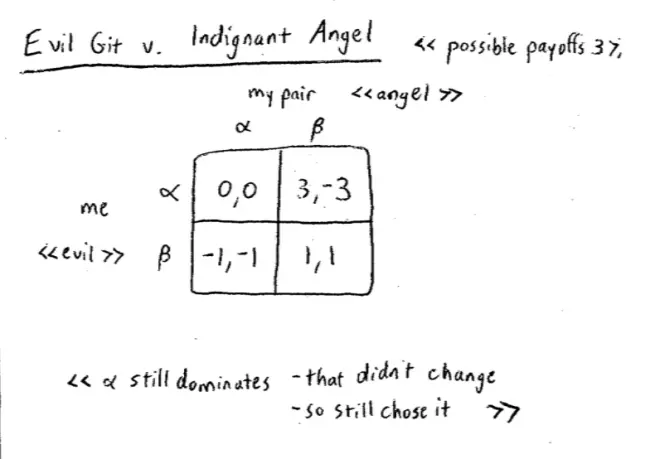 Evil Git v. Indignant Angel << possible payoffs 3 >>
my pair << angel >>
α β
me α 0,0 3,-3
<< evil >> β -1,-1 1,1
<< α still dominates - that didn't change
- so still chose it >>